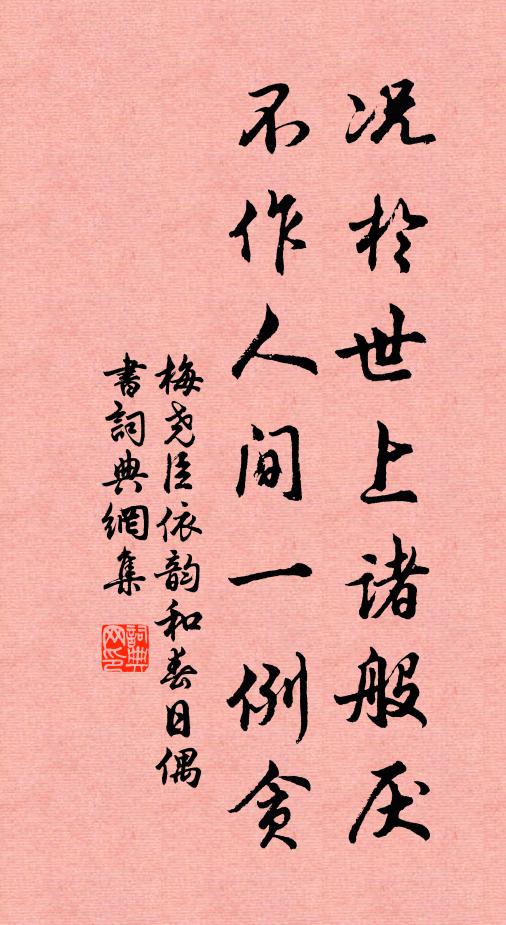 况於世上诸般厌
不作人间一例贪
梅尧臣依韵和春日偶
書詞典網集
詞典
网印